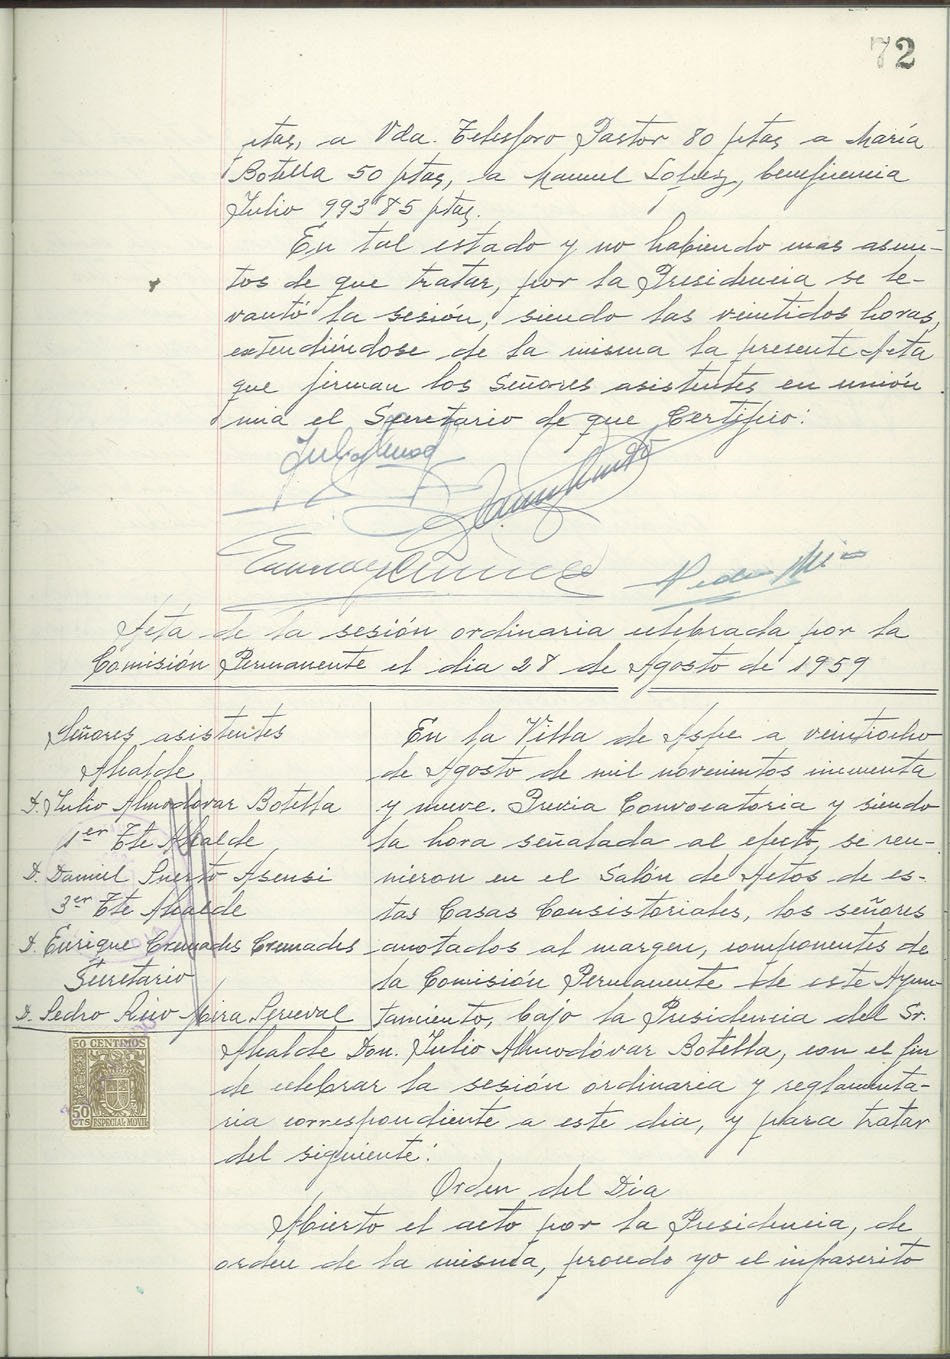 72
ptas, a Vda. Telesforo Pastor 80 ptas a María
Botella 50 ptas, a Manuel López, beneficencia
Julio 993'85 ptas.
En tal estado y no habiendo mas asun-
tos de que tratar, por la Presidencia se le-
vantó la sesión, siendo las veintidos horas,
extendiéndose de la misma la presente Acta
que firman los Señores asistentes en unión
mia el Secretario de que Certifico:
Acta de la sesión ordinaria celebrada por la
Comisión Permanente el dia 28 de Agosto de 1959
Señores asistentes
Alcalde
D. Julio Almodóvar Botella
1er Tte Alcalde
D. Daniel Puerto Asensi
3er Tte Alcalde
D. Enrique Cremades Cremades
Secretario
D. Pedro Mira
50 CENTIMOS
50 CTS ESPECIAL MOVIL
En la Villa de Aspe a veintiocho
de Agosto de mil novecientos cincuenta
y nueve. Previa Convocatoria y siendo
la hora señalada al efecto, se reu-
nieron en el Salón de Actos de es-
tas Casas Consistoriales, los señores
anotados al margen, componentes de
la Comisión Permanente de este Ayun-
tamiento, bajo la Presidencia del Sr.
Alcalde Don. Julio Almodóvar Botella, con el fin
de celebrar la sesión ordinaria y reglamenta-
ria correspondiente a este dia, y para tratar
del siguiente:
Orden del Dia
Abierto el acto por la Presidencia, de
orden de la misma, procedo yo el infrascrito